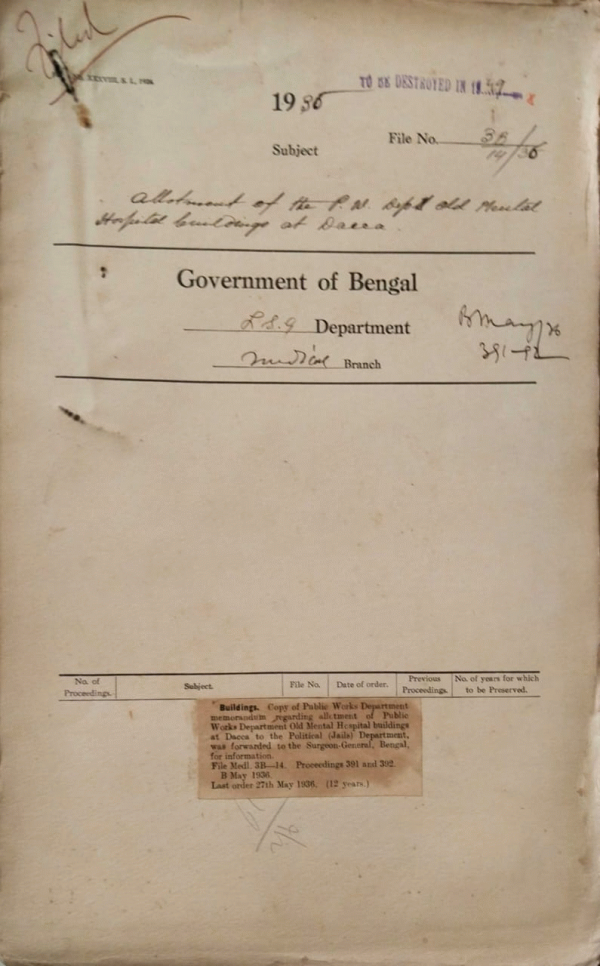 Filed
XXXVIII, S. L., 1926.
TO BE DESTROYED IN 19
1936
File No. 3B/14/36
Subject
Allotment of the P. W. Dept old Mental
Hospital buildings at Dacca.
Government of Bengal
L. S. G Department
B May/36
Medical Branch
391-92
No. of Proceedings.
Subject.
File No.
Date of order.
Previous Proceedings.
No. of years for which to be Preserved.
Buildings. Copy of Public Works Department
memorandum regarding allotment of Public
Works Department Old Mental Hospital buildings
at Dacca to the Political (Jails) Department,
was forwarded to the Surgeon-General, Bengal,
for information.
File Medl. 3B—14. Proceedings 391 and 392.
B May 1936.
Last order 27th May 1936. (12 years.)